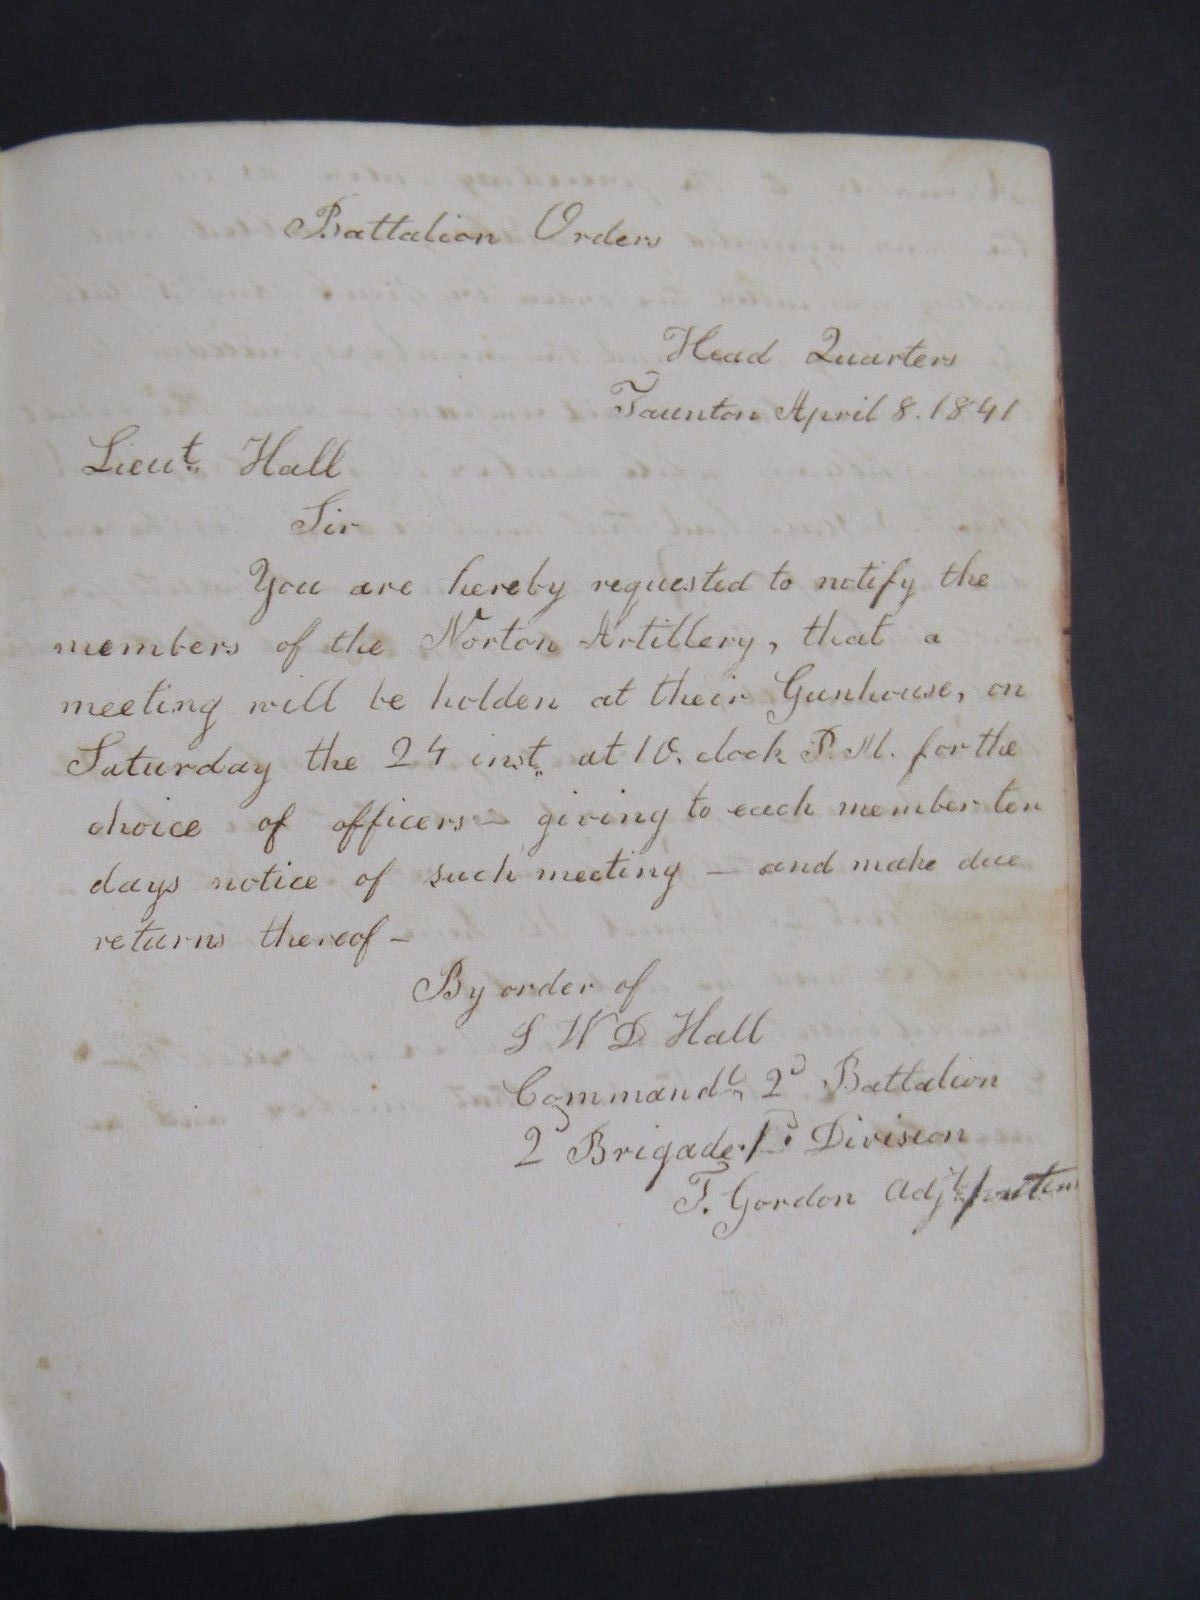 Battalion Orders
Head Quarters
Taunton April 8. 1841
Lieut. Hall
Sir
You are hereby requested to notify the
members of the Norton Artillery, that a
meeting will be holden at their Gunhouse, on
Saturday the 24 inst. at 1 O. clock P. M. for the
choice of officers — giving to each member ten
days notice of such meeting — and make due
returns thereof —
By order of
S W D Hall
Commandt. 2d Battalion
2d Brigade. Division
F. Gordon Adjt.